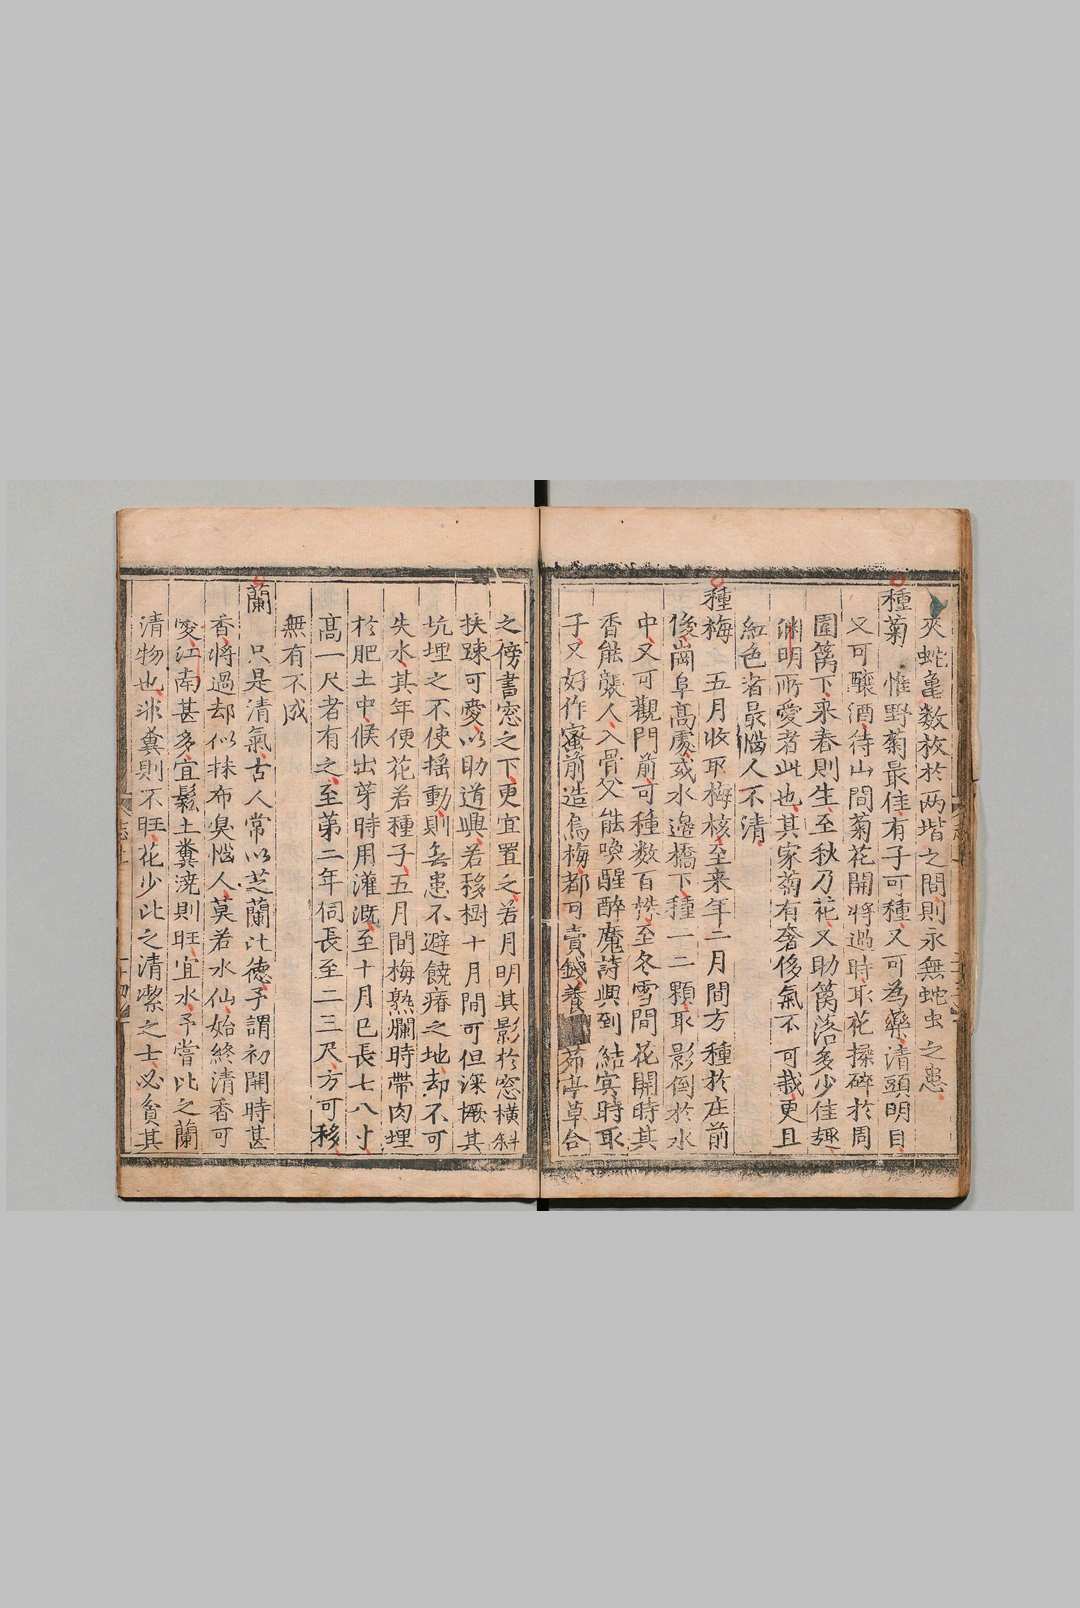 夾蛇龜數放於兩堦之間則永無蛇虫之患
種菊 惟野菊最佳有子可種又可為藥清頭明目
又可釀酒待山間菊花開將過時取花揉碎於周
圍籬下来春則生至秋乃花又助籬落多少佳趣
渊明所愛者此也其家菊有奢侈氣不可栽更且
紅色者最惱人不清
種梅 五月收取梅核至来年二月間方種於庄前
後崗阜髙處或水邊橋下種一二顆取影倒於水
中又可觀門前可種数百株至冬雪間花開時其
香能襲人入骨父能喚醒醉魔詩興到結宲時取
子又好作蜜煎造烏梅都可賣錢養茆亭草合
之傍書窓之下更宜置之若月明其影於窓橫斜
扶踈可愛以助道興若移樹十月間可但深橛其
坑埋之不使揺動則無患不避饒瘠之地却不可
失水其年便花若種子五月間梅熟爛時帶肉埋
於肥土中候出芽時用灌溉至十月已長七八寸
髙一尺者有之至第二年伺長至二三尺方可移
無有不成
蘭 只是清氣古人常以芝蘭比徳予謂初開時甚
香將過却似抹布臭惱人莫若水仙始終清香可
愛江南甚多宜鬆土糞澆則旺宜水予嘗比之蘭
清物也非糞則不旺花少比之清潔之士必貧其